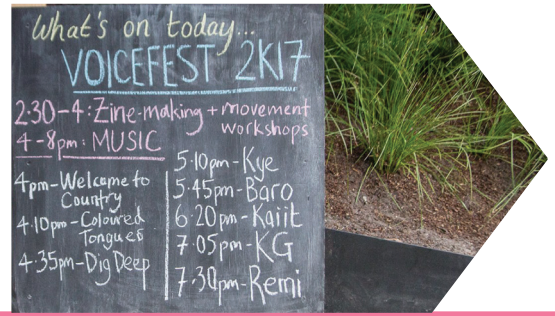 What's on today...
VOICEFEST 2K17
2:30-4: Zine-making + movement
workshops
4-8pm: MUSIC
4pm-Welcome to
Country
4.10pm-Coloured
Tongues
4.35pm-Dig Deep
5.10pm-Kye
5.45pm-Baro
6.20pm-Kaiit
7.05pm-KG
7.30pm-Remi